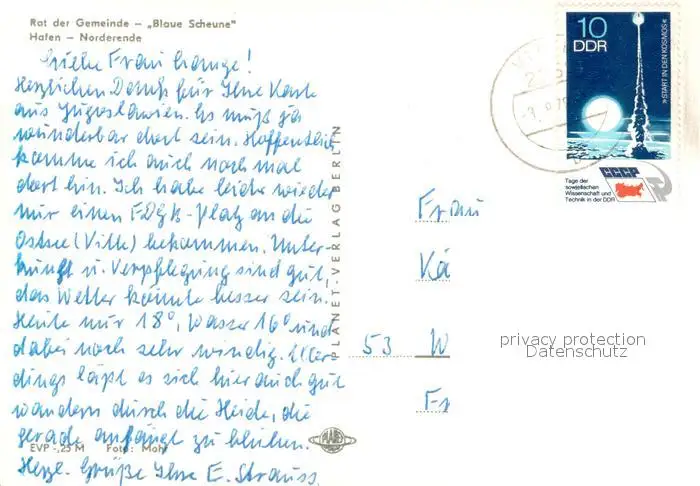 Rat der Gemeinde — „Blaue Scheune"
Hafen — Norderende
Liebe Frau Lange!
Herzlichen Dank für Ihre Karte
aus Jugoslawien. Es muß ja
wunderbar dort sein. Hoffentlich
komme ich auch noch mal
dort hin. Ich habe leider wieder
nur einen FDGB-Platz an die
Ostsee (Vitte) bekommen. Unter-
kunft u. Verpflegung sind gut,
das Wetter könnte besser sein.
Heute nur 18°, Wasser 16° und
dabei noch sehr windig. Aller-
dings läßt es sich hier auch gut
wandern durch die Heide, die
gerade anfängt zu blühen.
Herzl. Grüße Ihre E. Strauss.
EVP -,25 M Foto: Mohr
PLANET-VERLAG BERLIN
PLANET
10
DDR
»START IN DEN KOSMOS«
CCCP
Tage der
sowjetischen
Wissenschaft und
Technik in der DDR
Frau
Kä
53 W
Fr
privacy protection
Datenschutz